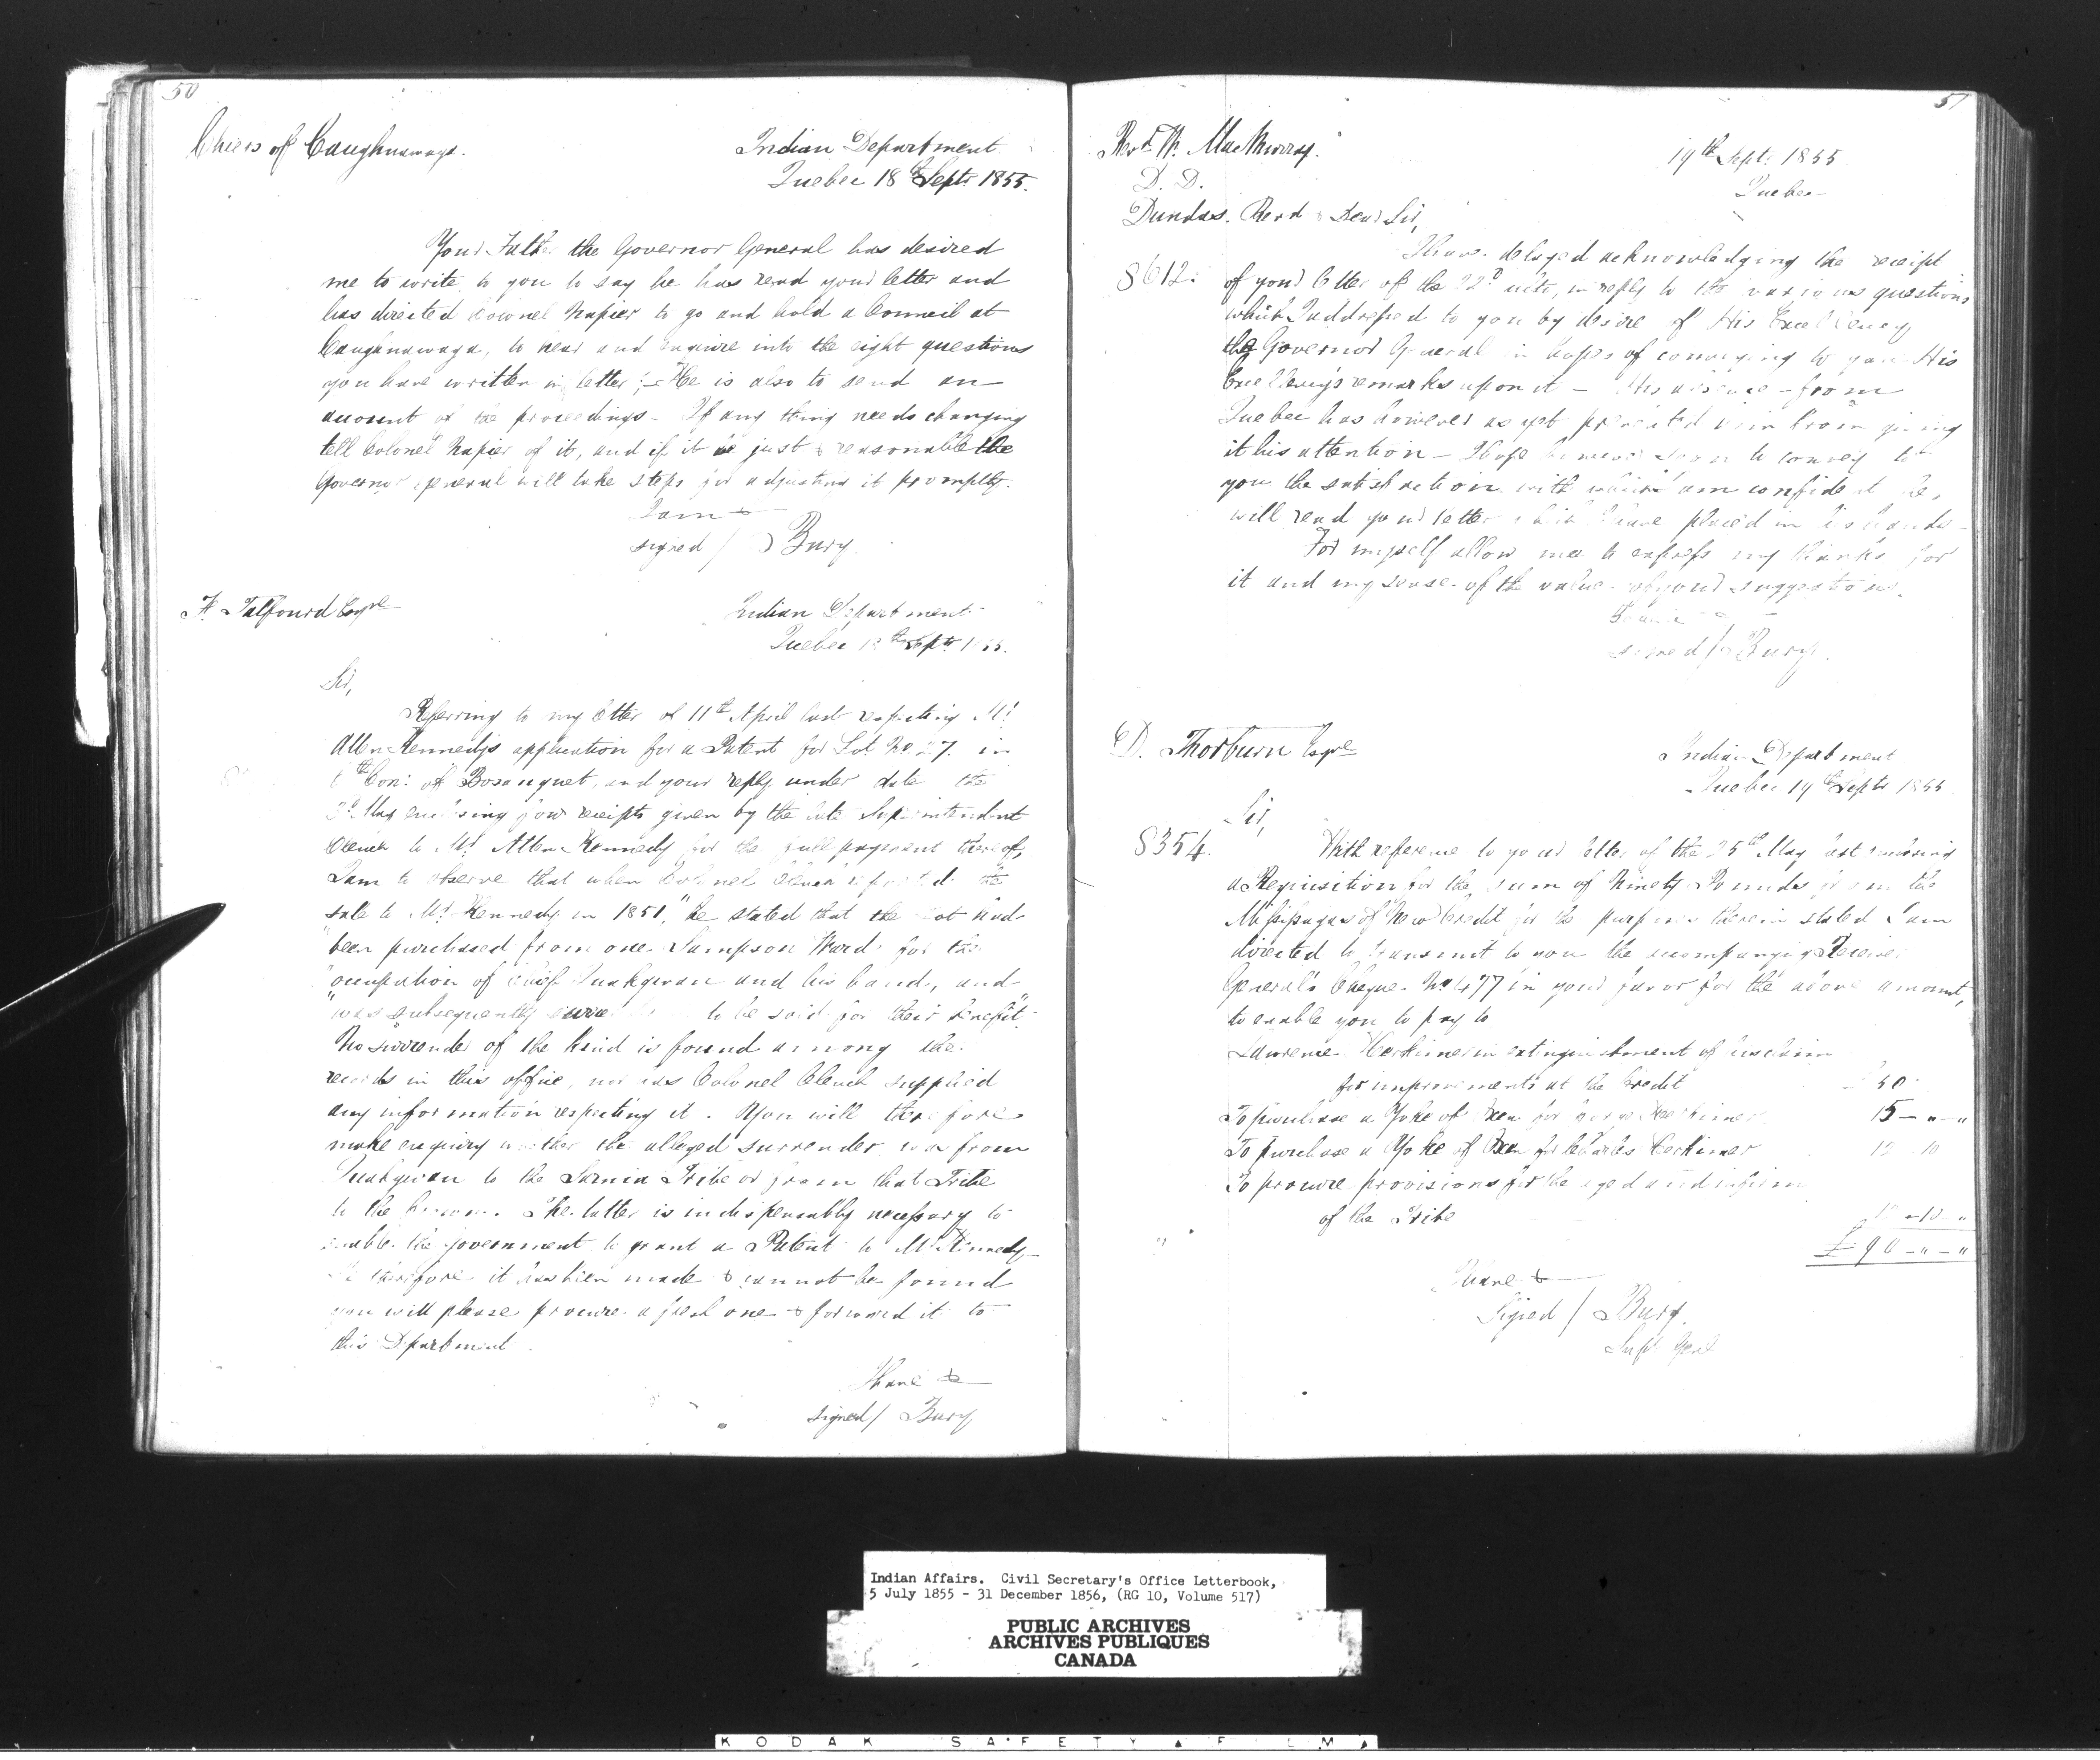 50
Chiefs of Caughnawaga.
Indian Department
Quebec 18th Septr 1855.
Your Father the Governor General has desired
me to write to you to say he has read your letter and
has directed Colonel Napier to go and hold a Council at
Caughnawaga, to hear and enquire into the eight questions
you have written in letter; - He is also to send an
account of the proceedings - If any thing needs changing
tell Colonel Napier of it, and if it be just & reasonable the
Governor general will take steps for adjusting it promptly.
I am &
signed / Bury.
F. Talfourd Esqre
Indian Department
Quebec 18th Septr 1855.
Sir,
Referring to my letter of 11th April last respecting Mr
Allen Kennedy's application for a Patent for Lot No 27. in
Con: of Bosanquet, and your reply under date the
3d May enclosing four receipts given by the late Superintendent
Clench to Mr Allen Kennedy for the full payment thereof,
I am to observe that when Colonel Clench reported the
sale to Mr Kennedy in 1851, "he stated that the Lot had
"been purchased from one Sampson Ward for the
"occupation of chief and his band, and
"was subsequently to be sold for their benefit".
No surrender of the kind is found among the
records in this office, nor has Colonel Clench supplied
any information respecting it. You will therefore
make enquiry whether the alleged surrender was from
to the Sarnia Tribe or from that Tribe
to the Crown. The latter is indispensably necessary to
enable the Government to grant a Patent to Mr Kennedy -
If therefore it has been made & cannot be found
you will please procure a fresh one & forward it to
this Department.
I have &
signed / Bury
51
Revd W. MacMurray.
D. D.
Dundas.
19th Septr 1855
Quebec
Revd & Dear Sir,
I have delayed acknowledging the receipt
8612.
of your letter of the 22d ulto, in reply to the various questions
which I addressed to you by desire of His Excellency
the Governor General in hopes of conveying to you His
Excellency's remarks upon it - His absence from
Quebec has however as yet prevented him from giving
it his attention - I hope however soon to convey to
you the satisfaction with which I am confident he
will read your letter which I have placed in his hands -
For myself allow me to express my thanks for
it and my sense of the value of your suggestions.
signed / Bury.
D. Thorburn Esqre
Indian Department
Quebec 19th Septr 1855
Sir,
8354.
With reference to your letter of the 25th May last enclosing
a Requisition for the sum of Ninety Pounds from the
Missisagas of New Credit for the purposes therein stated I am
directed to transmit to you the accompanying Receiver
General's Cheque No 477 in your favor for the above amount,
to enable you to pay to
Lawrence Herkimer in extinguishment of his claim
for improvements at the Credit 50
To purchase a Yoke of Oxen for Herkimer 15 - " - "
To purchase a Yoke of Oxen for Charles Herkimer 12 10
To procure provisions for the aged and infirm
of the Tribe 12 - 10 - "
£ 90 - " - "
I have &
Signed / Bury.
Supt Genl
Indian Affairs. Civil Secretary's Office Letterbook,
5 July 1855 - 31 December 1856, (RG 10, Volume 517)
PUBLIC ARCHIVES
ARCHIVES PUBLIQUES
CANADA
KODAK SAFETY FILM